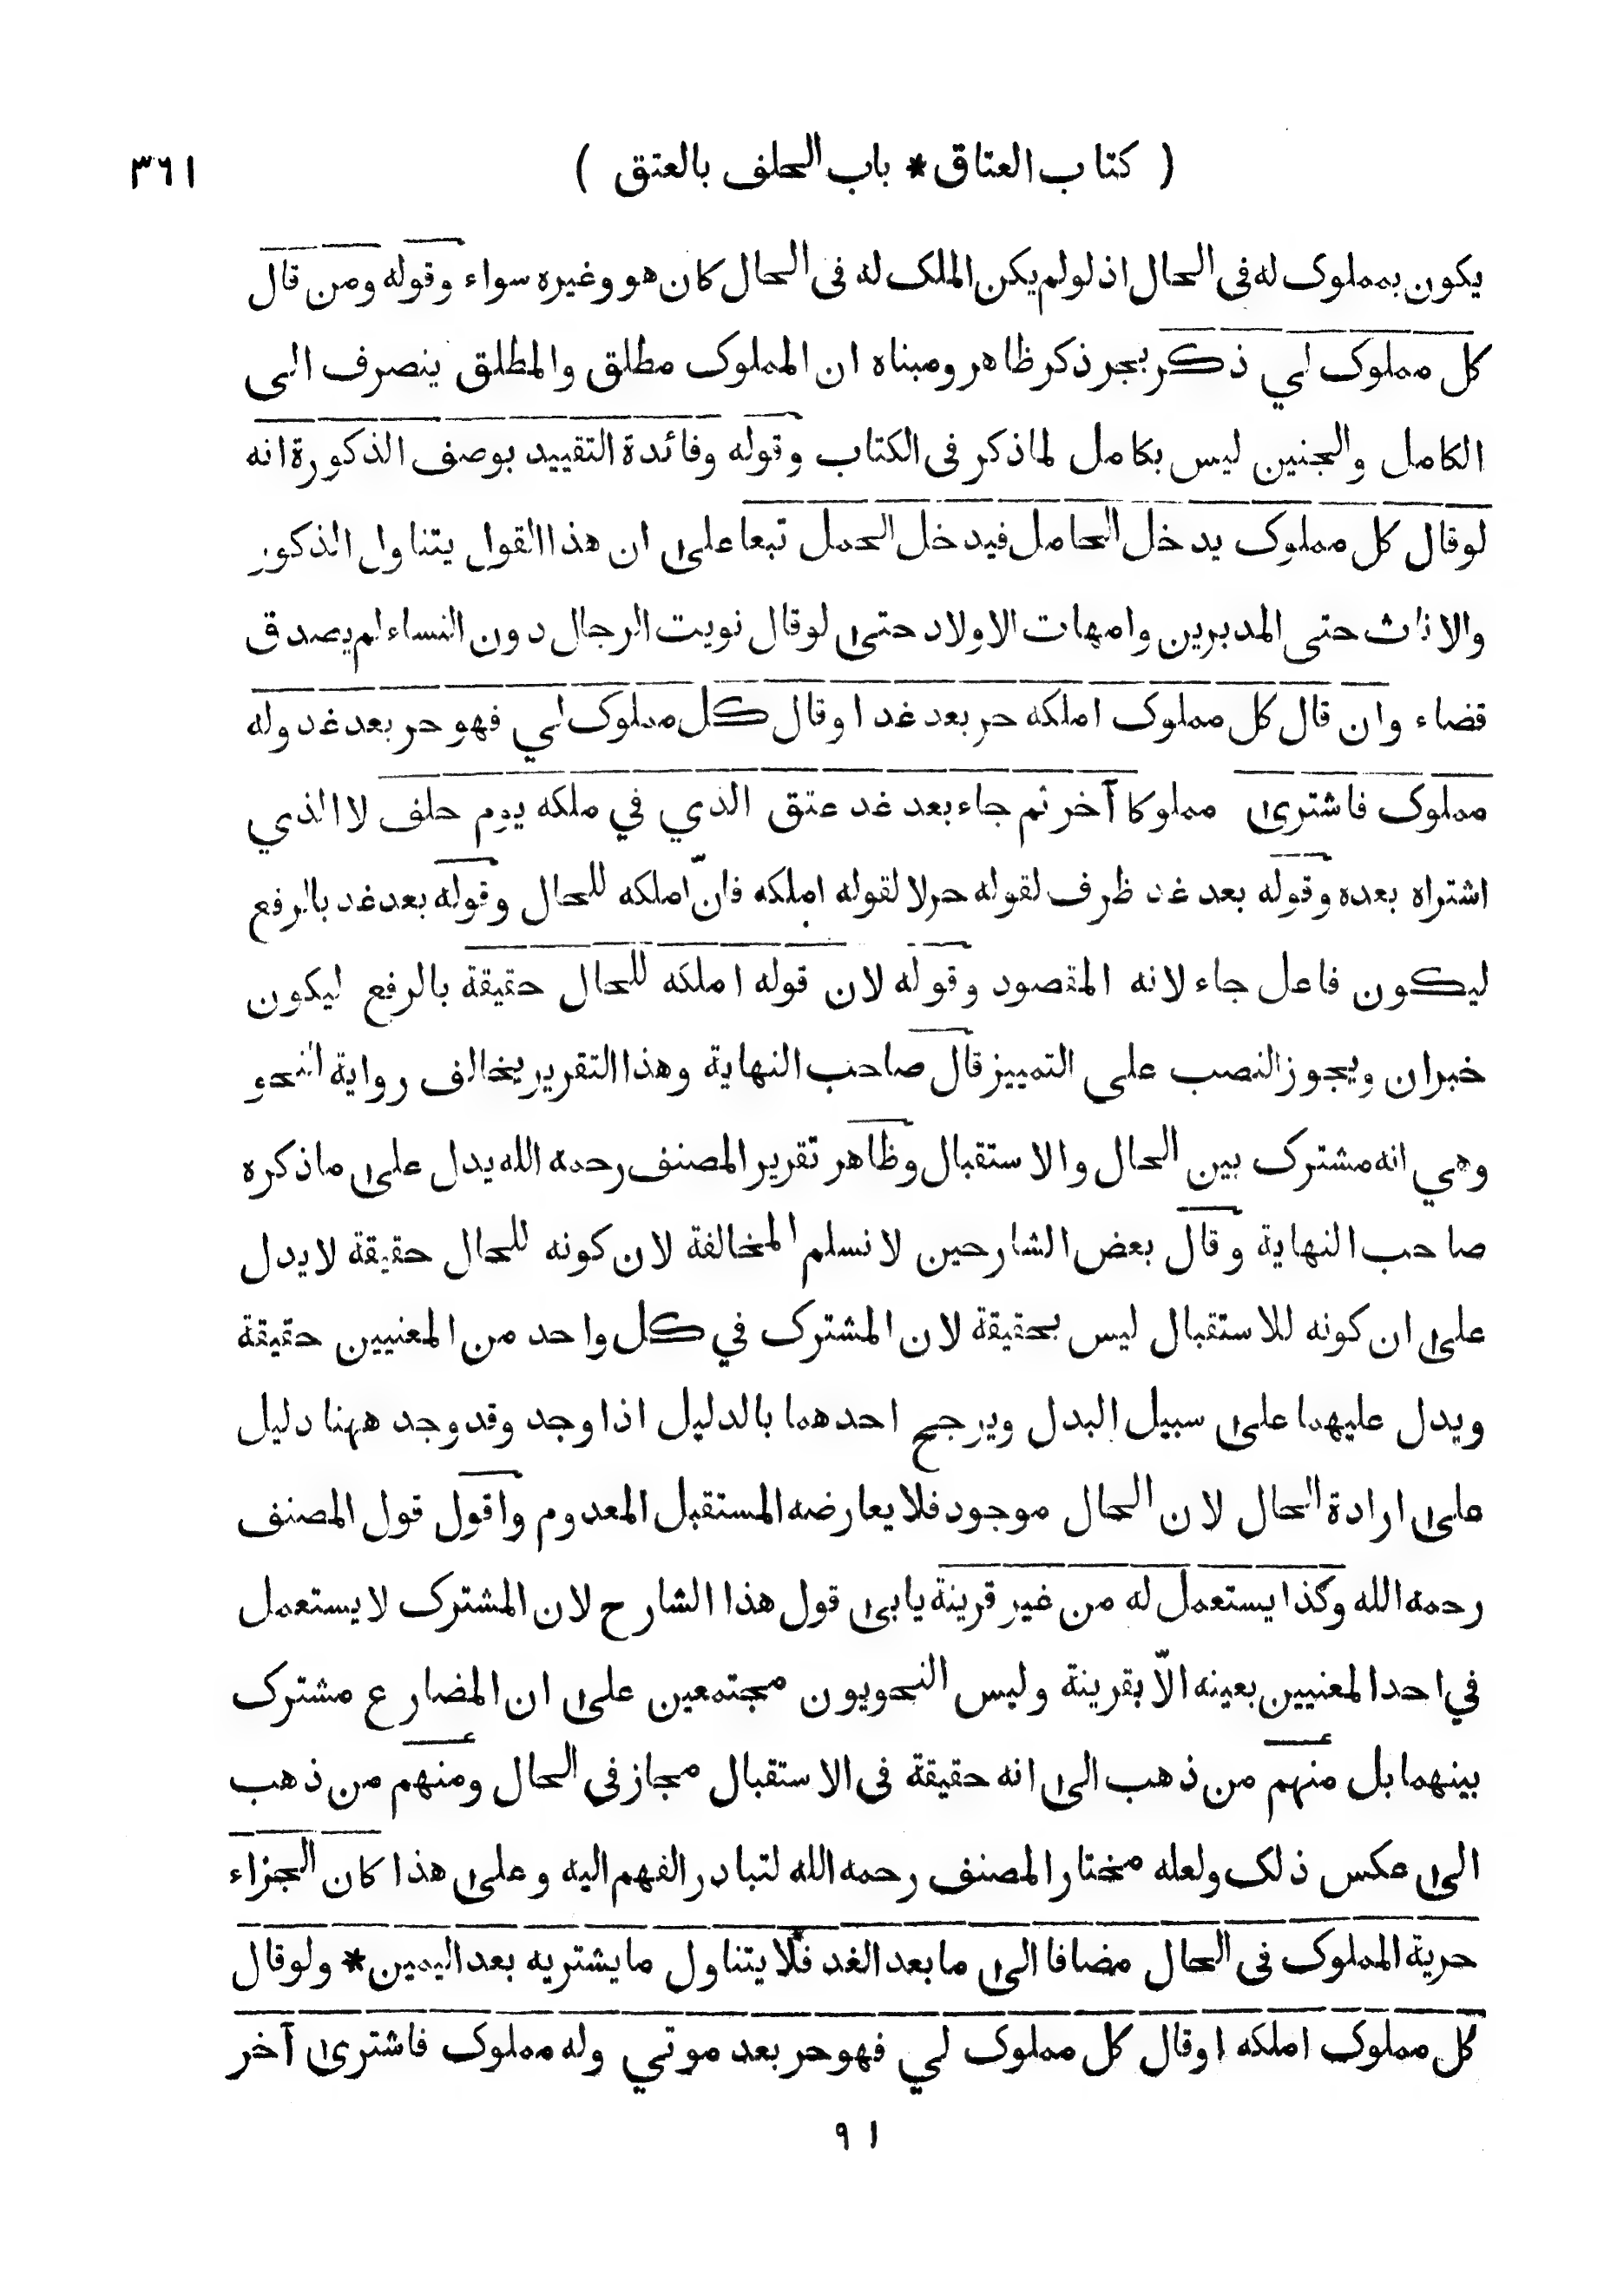 ( كتاب العتاق * باب الحلف بالعتق ) ٣٦١
يكون بمملوك له فى الحال اذ لو لم يكن الملك له فى الحال كان هو وغيره سواء وقوله ومن قال
كل مملوك لي ذكر بجر ذكر ظاهر ومبناه ان المملوك مطلق والمطلق ينصرف الى
الكامل والجنين ليس بكامل لما ذكر فى الكتاب وقوله وفائدة التقييد بوصف الذكورة انه
لو قال كل مملوك يدخل الحامل فيدخل الحمل تبعا على ان هذا القول يتناول الذكور
والاناث حتى المدبرين وامهات الاولاد حتى لو قال نويت الرجال دون النساء لم يصدق
قضاء وان قال كل مملوك املكه حر بعد غد او قال كل مملوك لي فهو حر بعد غد وله
مملوك فاشترى مملوكا آخر ثم جاء بعد غد عتق الذي في ملكه يوم حلف لا الذي
اشتراه بعده وقوله بعد غد ظرف لقوله حر لا لقوله املكه فانّ املكه للحال وقوله بعد غد بالرفع
ليكون فاعل جاء لانه المقصود وقوله لان قوله املكه للحال حقيقة بالرفع ليكون
خبر ان ويجوز النصب على التمييز قال صاحب النهاية وهذا التقرير يخالف رواية النحو
وهي انه مشترك بين الحال والاستقبال وظاهر تقرير المصنف رحمه الله يدل على ما ذكره
صاحب النهاية وقال بعض الشارحين لا نسلم المخالفة لان كونه للحال حقيقة لا يدل
على ان كونه للاستقبال ليس بحقيقة لان المشترك في كل واحد من المعنيين حقيقة
ويدل عليهما على سبيل البدل ويرجح احدهما بالدليل اذا وجد وقد وجد ههنا دليل
على ارادة الحال لان الحال موجود فلا يعارضه المستقبل المعدوم واقول قول المصنف
رحمه الله وكذا يستعمل له من غير قرينة يابى قول هذا الشارح لان المشترك لا يستعمل
في احد المعنيين بعينه الاّ بقرينة وليس النحويون مجتمعين على ان المضارع مشترك
بينهما بل منهم من ذهب الى انه حقيقة فى الاستقبال مجاز فى الحال ومنهم من ذهب
الى عكس ذلك ولعله مختار المصنف رحمه الله لتبادر الفهم اليه وعلى هذا كان الجزاء
حرية المملوك فى الحال مضافا الى ما بعد الغد فلا يتناول ما يشتريه بعد اليمين * ولو قال
كل مملوك املكه او قال كل مملوك لي فهو حر بعد موتي وله مملوك فاشترى آخر
٩١